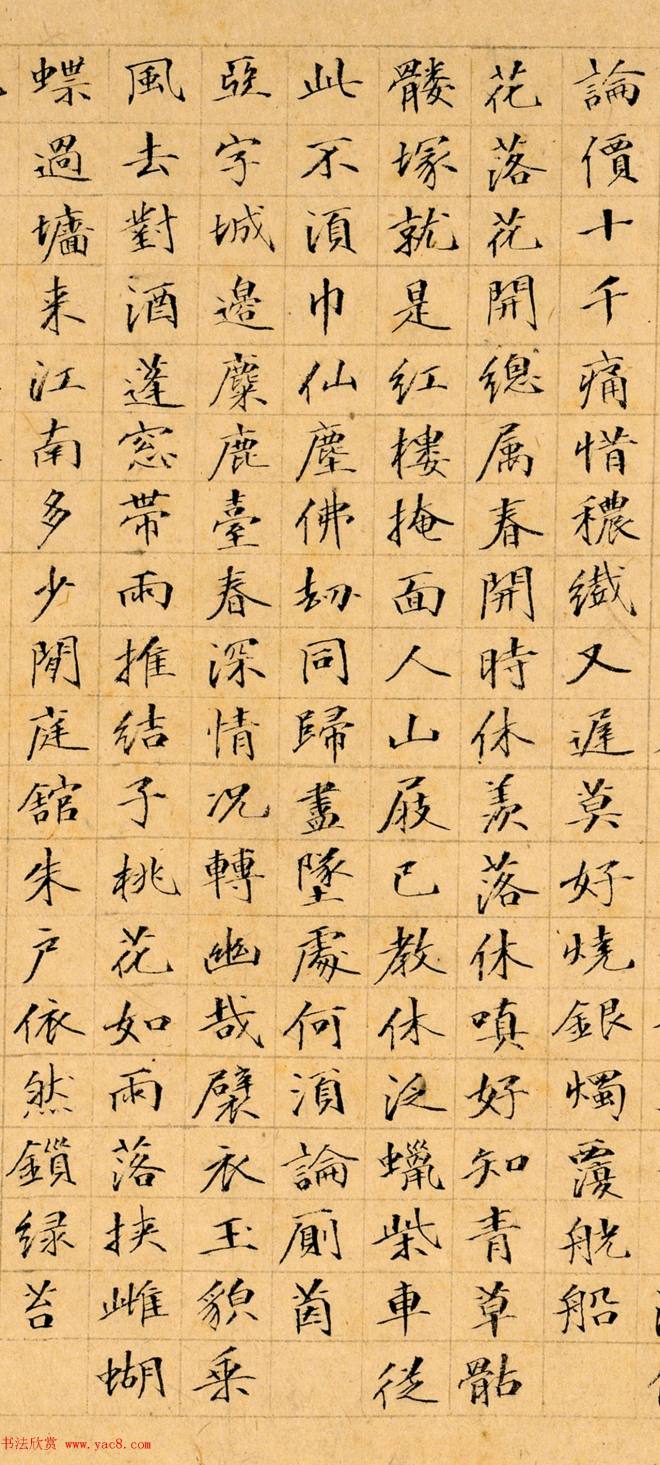 論價十千痛惜穠纖又遲莫好燒銀燭覆觥船
花落花開總属春開時休羨落休嗔好知青草骷
髏塚就是紅樓掩面人山屐已教休泛蠟柴車從
此不須巾仙塵佛劫同歸盡墜處何須論厠茵
亞字城邊麋鹿臺春深情况轉幽哉襞衣玉貌乘
風去對酒蓬窓帶雨推結子桃花如雨落挾雌蝴
蝶過墻来江南多少閒庭舘朱户依然鎖緑苔
书法欣赏 www.yac8.com